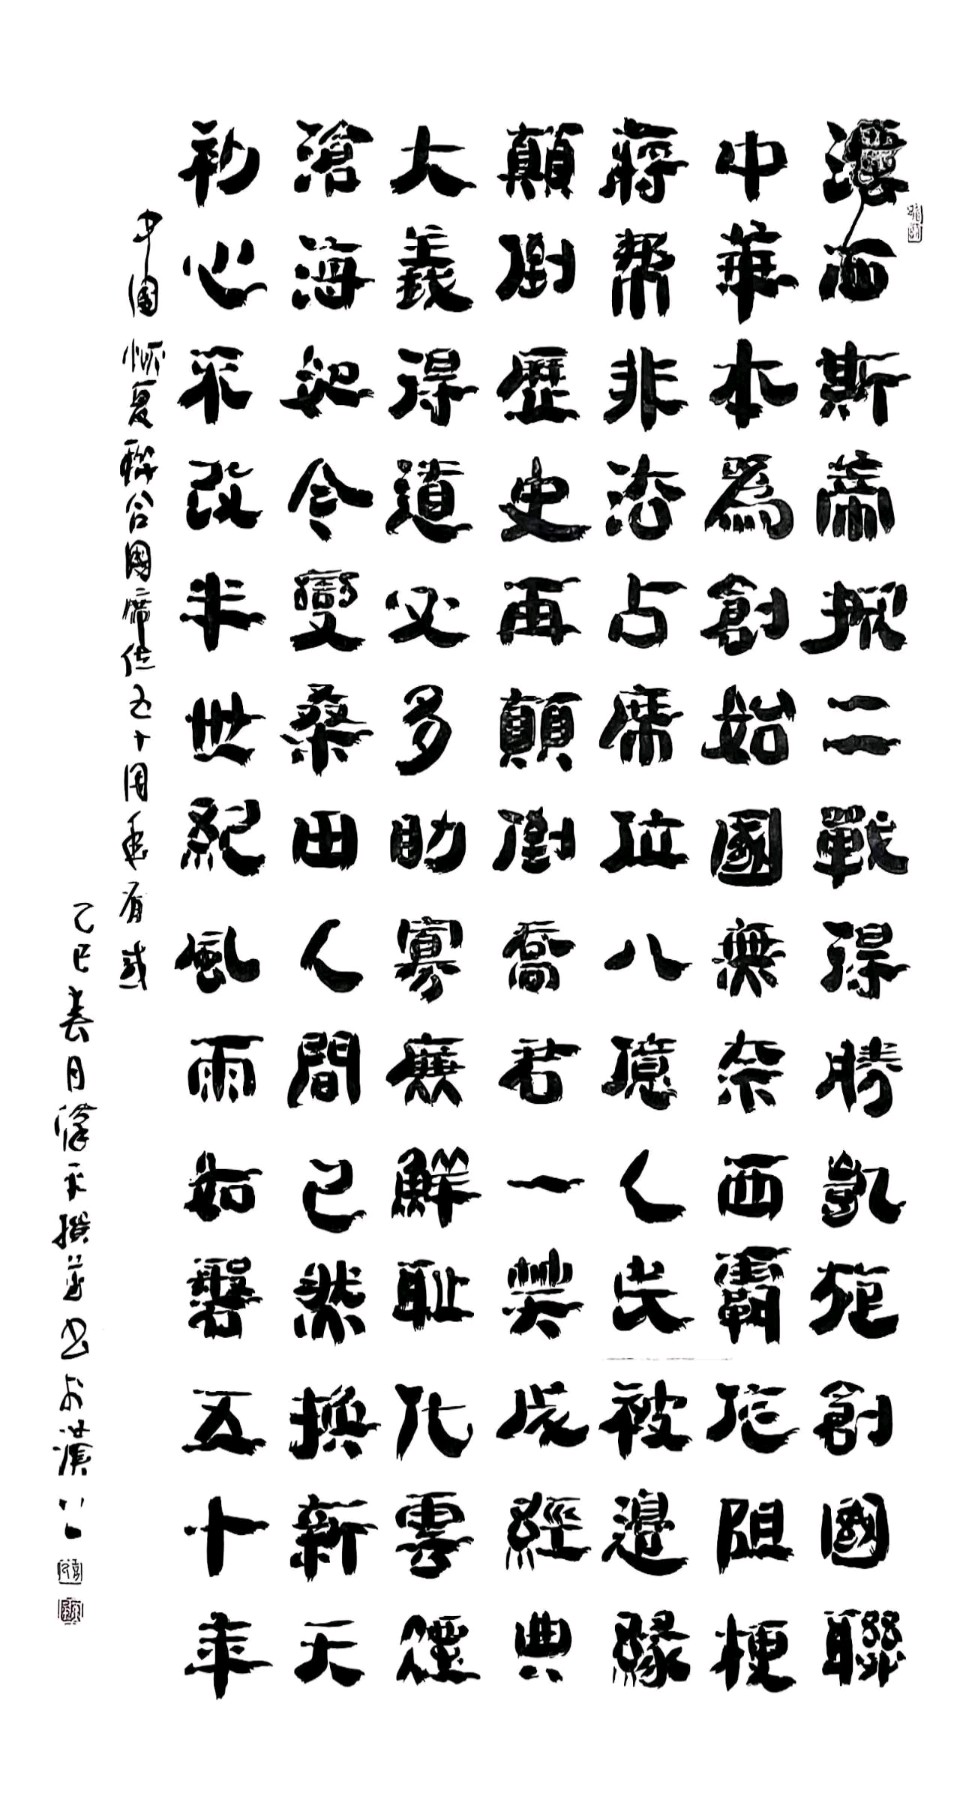 灋西斯蒂二戰得勝凱旋創國聯
中華本為創始國無奈西霸阻梗
蔣幫非法占席位八億人民被邊緣
顛倒歷史再顛倒喬君一笑成經典
大義得道必多助寡廉鮮恥化雲
滄海如今變桑田人間已然換新天
初心不改半世紀風雨如磐五十年
中國恢复聯合國席位五十周年有感
乙巳春月撰並书於漢